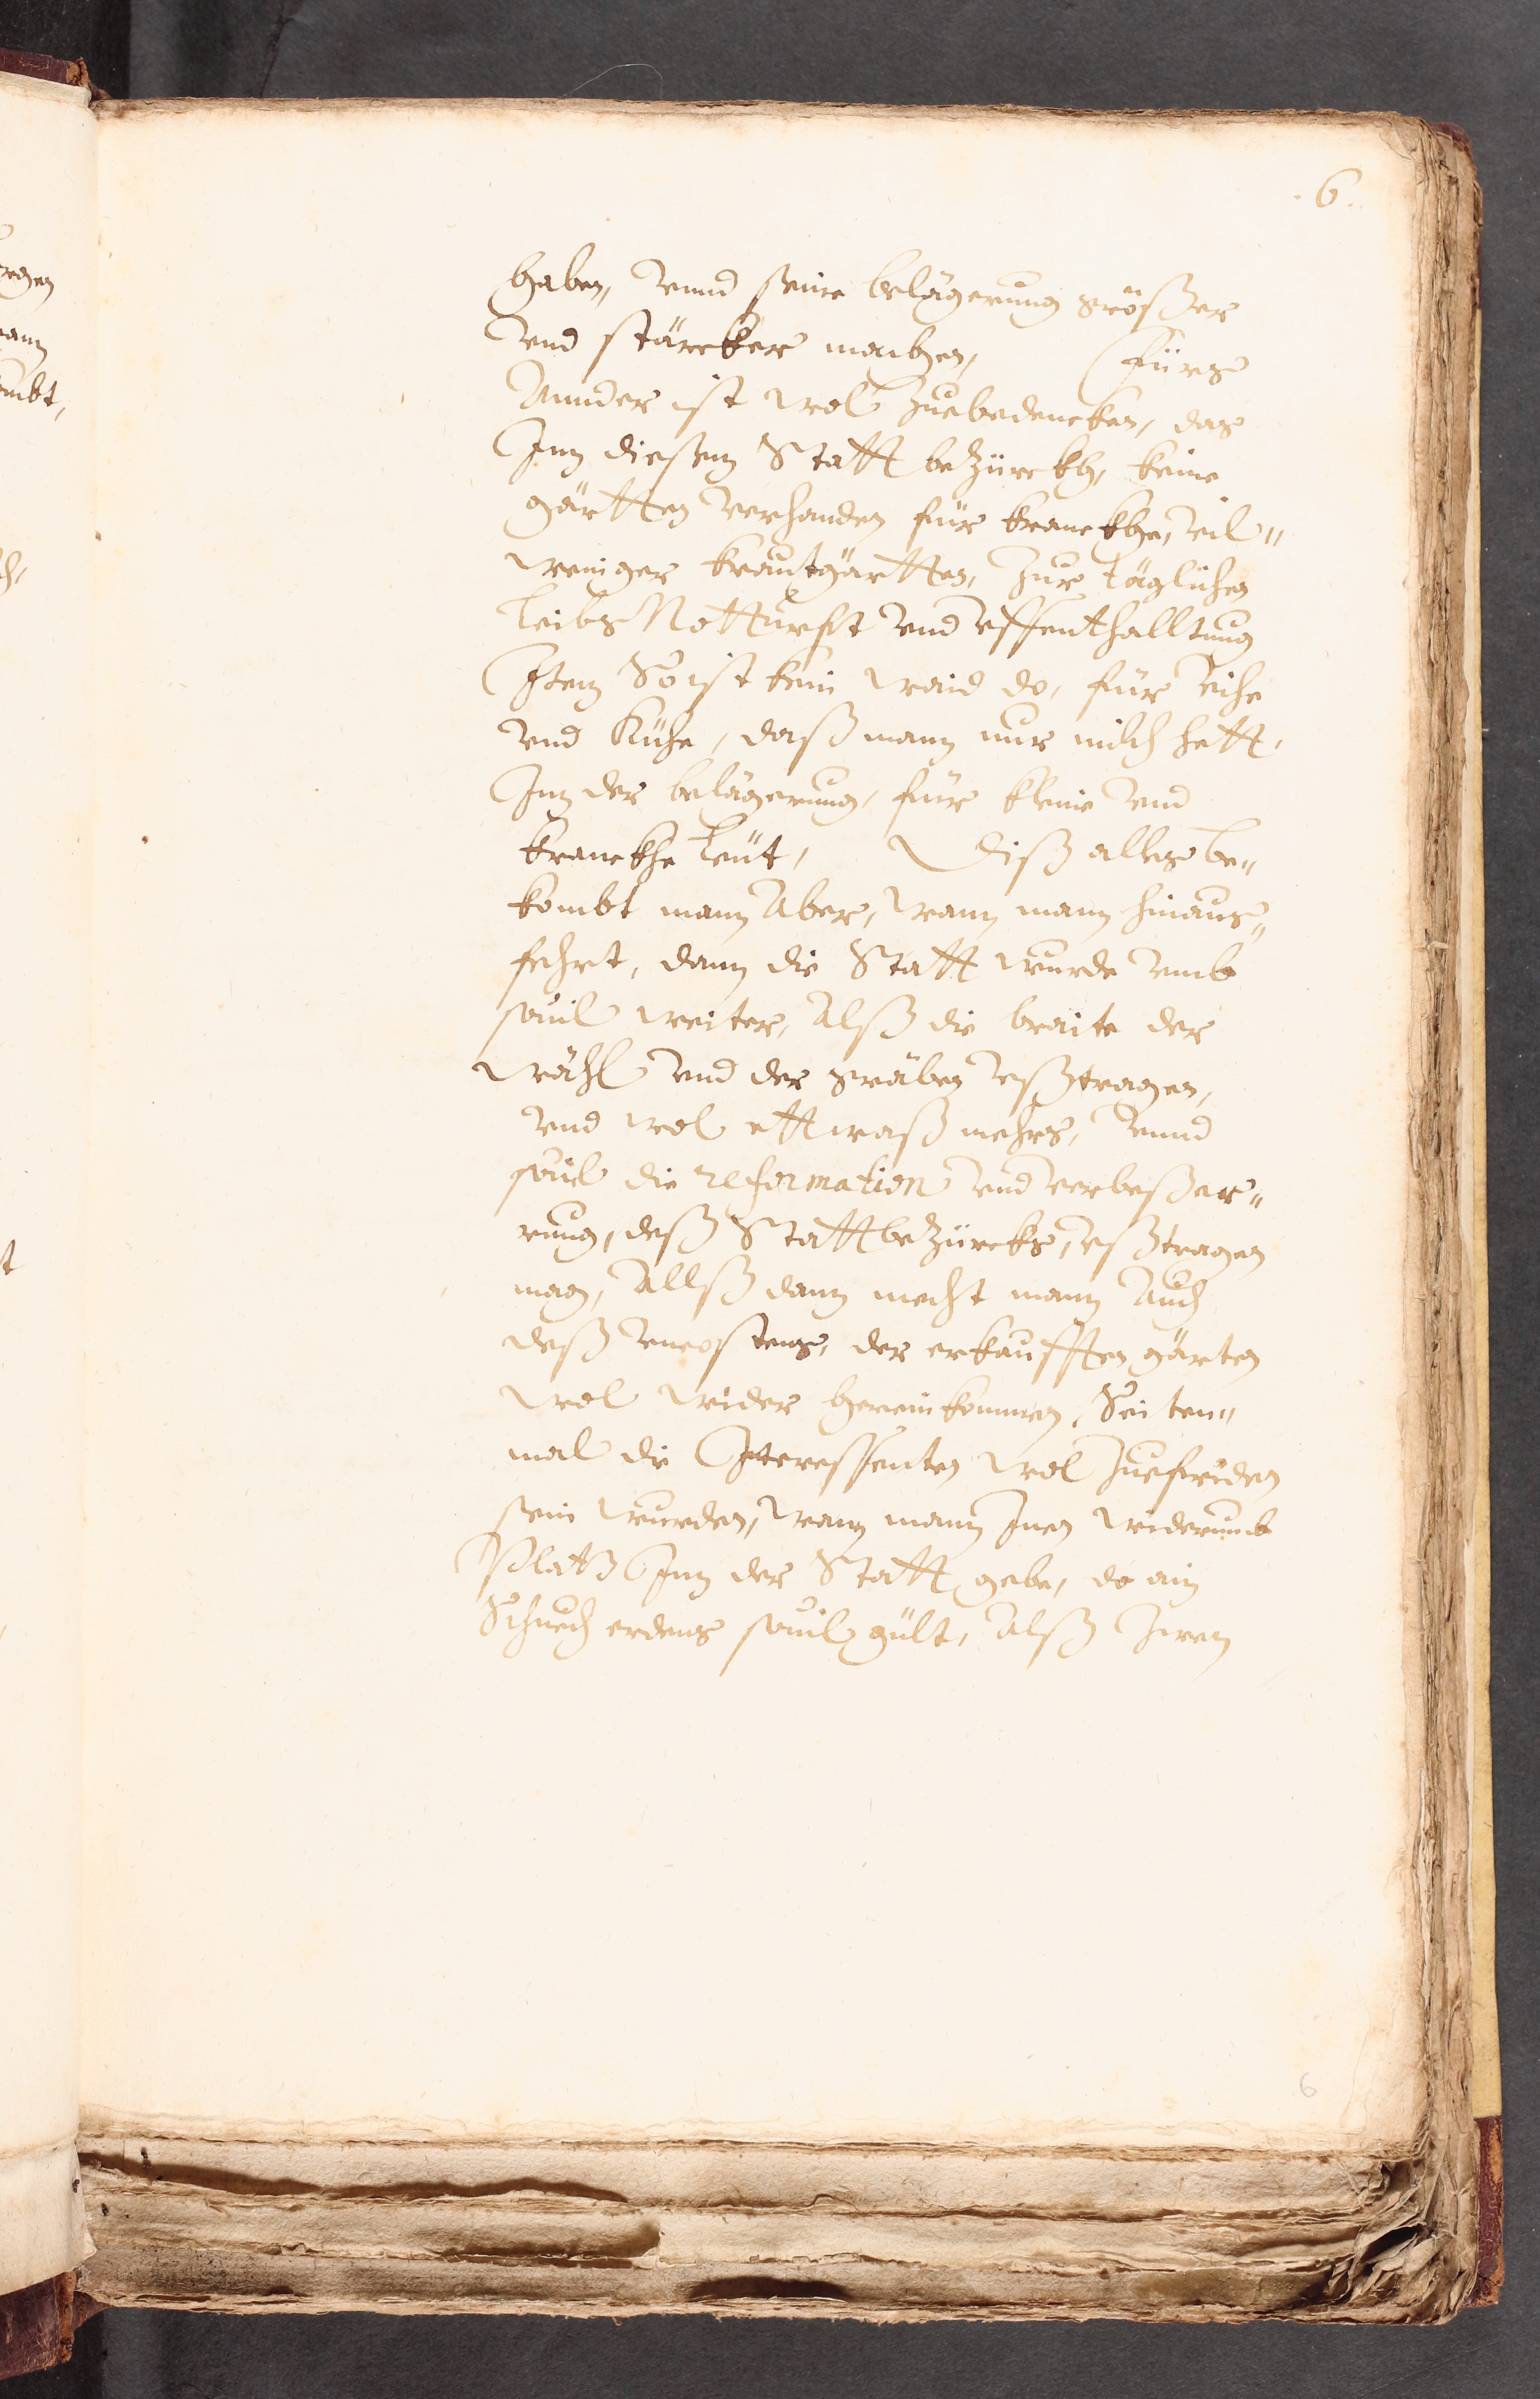 .6.
haben, vnnd seine belägerung größer
vnd stärcker machen, Fürs
Annder ist wol Zuebedencken, das
Inn diesem Statt beZürckh, keine
gärtten verhanden für kranckhe, vil„
weniger krautgärtten, Zur täglichen
Leibs Notturfft vnd vffenthalltung
Item So ist kein waid do, für Vihe
vnd Kühe, daß mann nur milch hett,
Inn der belägerung, für kleine vnd
kranckhe Leüt, Diß alles be„
kombt mann Aber, wann mann hinaus„
fehrt, dann die Statt wurde vmb
souil weiter, Alß die braite der
wähl vnd der gräben vßtragen,
vnd wol ettwaß mehrs, vnnd
souil die reformation vnd verbeßer„
rung, deß StattbeZürcks, vßtragen
mag, Allß dann mecht mann Auch
deß vncostens, der erkaufften gärten
wol wider hereinkommen, Seiten„
mal die Interessenten wol Zuefriden
sein wurden, wann mann Inen widerumb
Platz Inn der Statt gebe, do ain
Schuech erdens souil gült, Alß Zwen
6